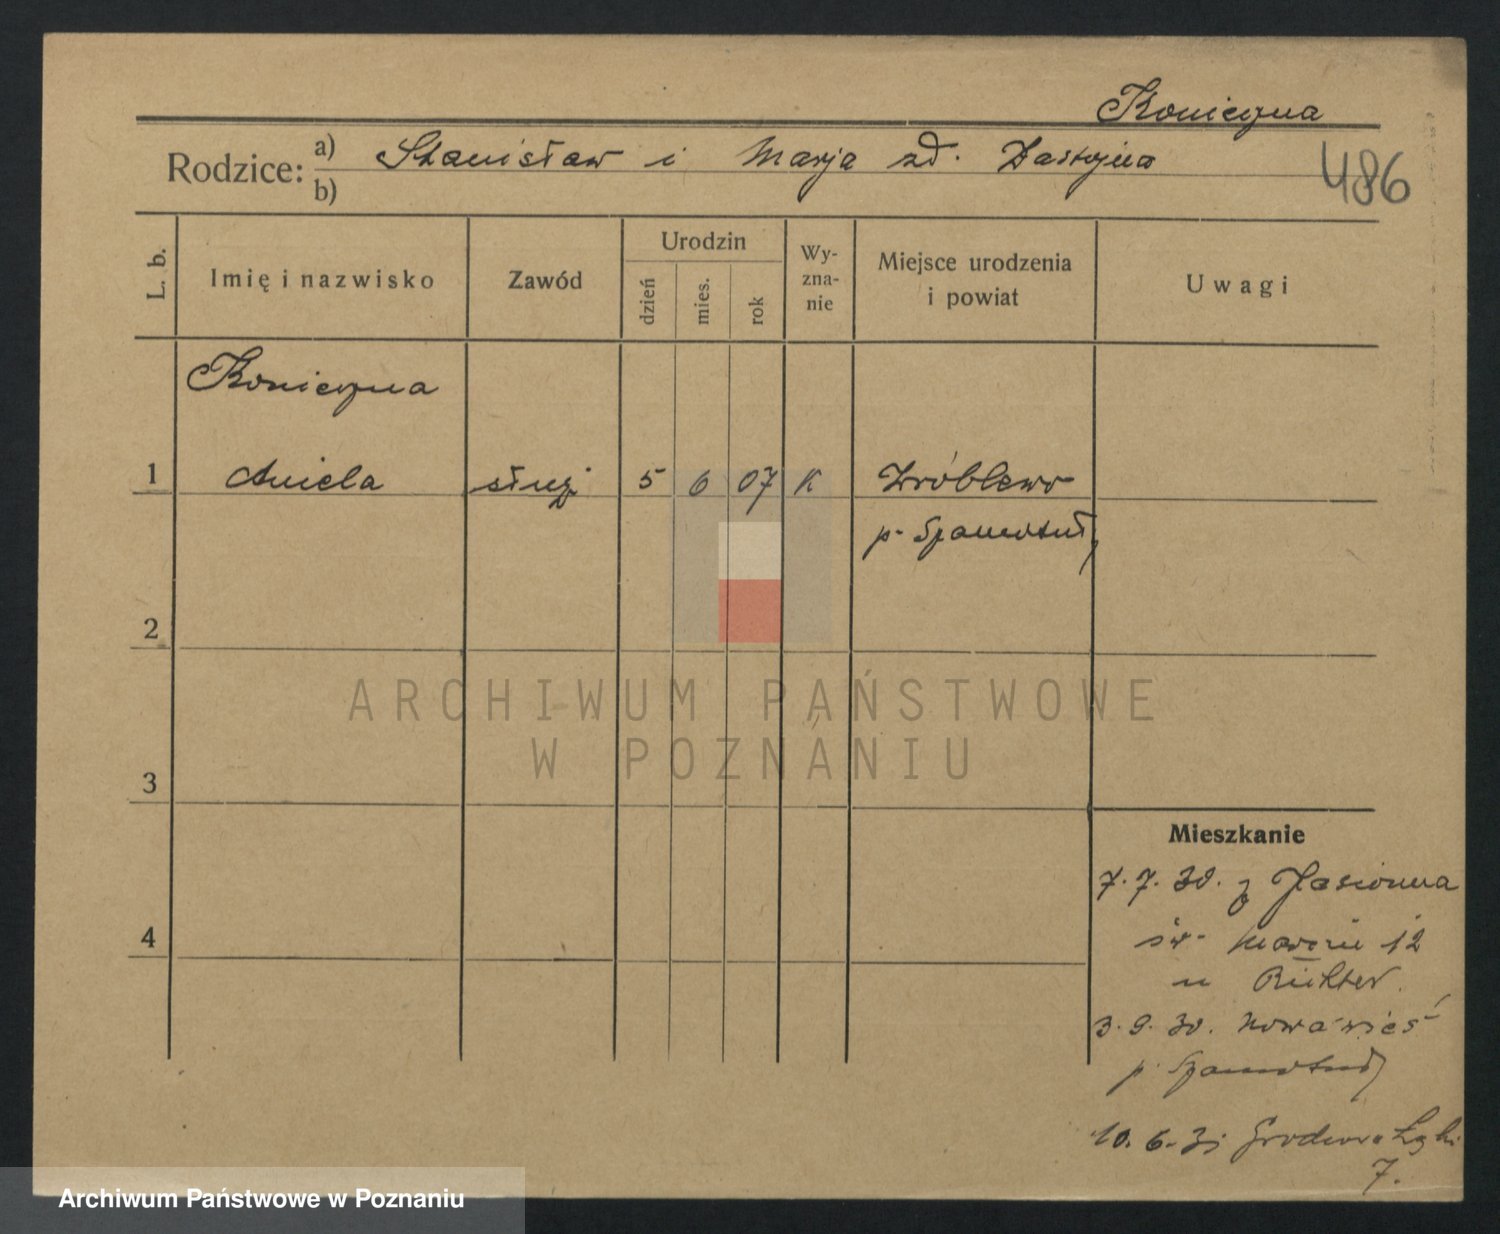 Konieczna
Rodzice: a) Stanisław i Marja zd.
b)
486
L. b.
Imię i nazwisko
Zawód
Urodzin
dzień
mies.
rok
Wy-
zna-
nie
Miejsce urodzenia
i powiat
Uwagi
Konieczna
1 Aniela służ 5 6 07 K Wróblewo
p. Szamotuły
2
3
4
Mieszkanie
7.7.30. z
św. Marcin 12
u Richter.
3.9.30. Nowawieś
p. Szamotuły
10.6.31
7.
ARCHIWUM PAŃSTWOWE
W POZNANIU
Archiwum Państwowe w Poznaniu